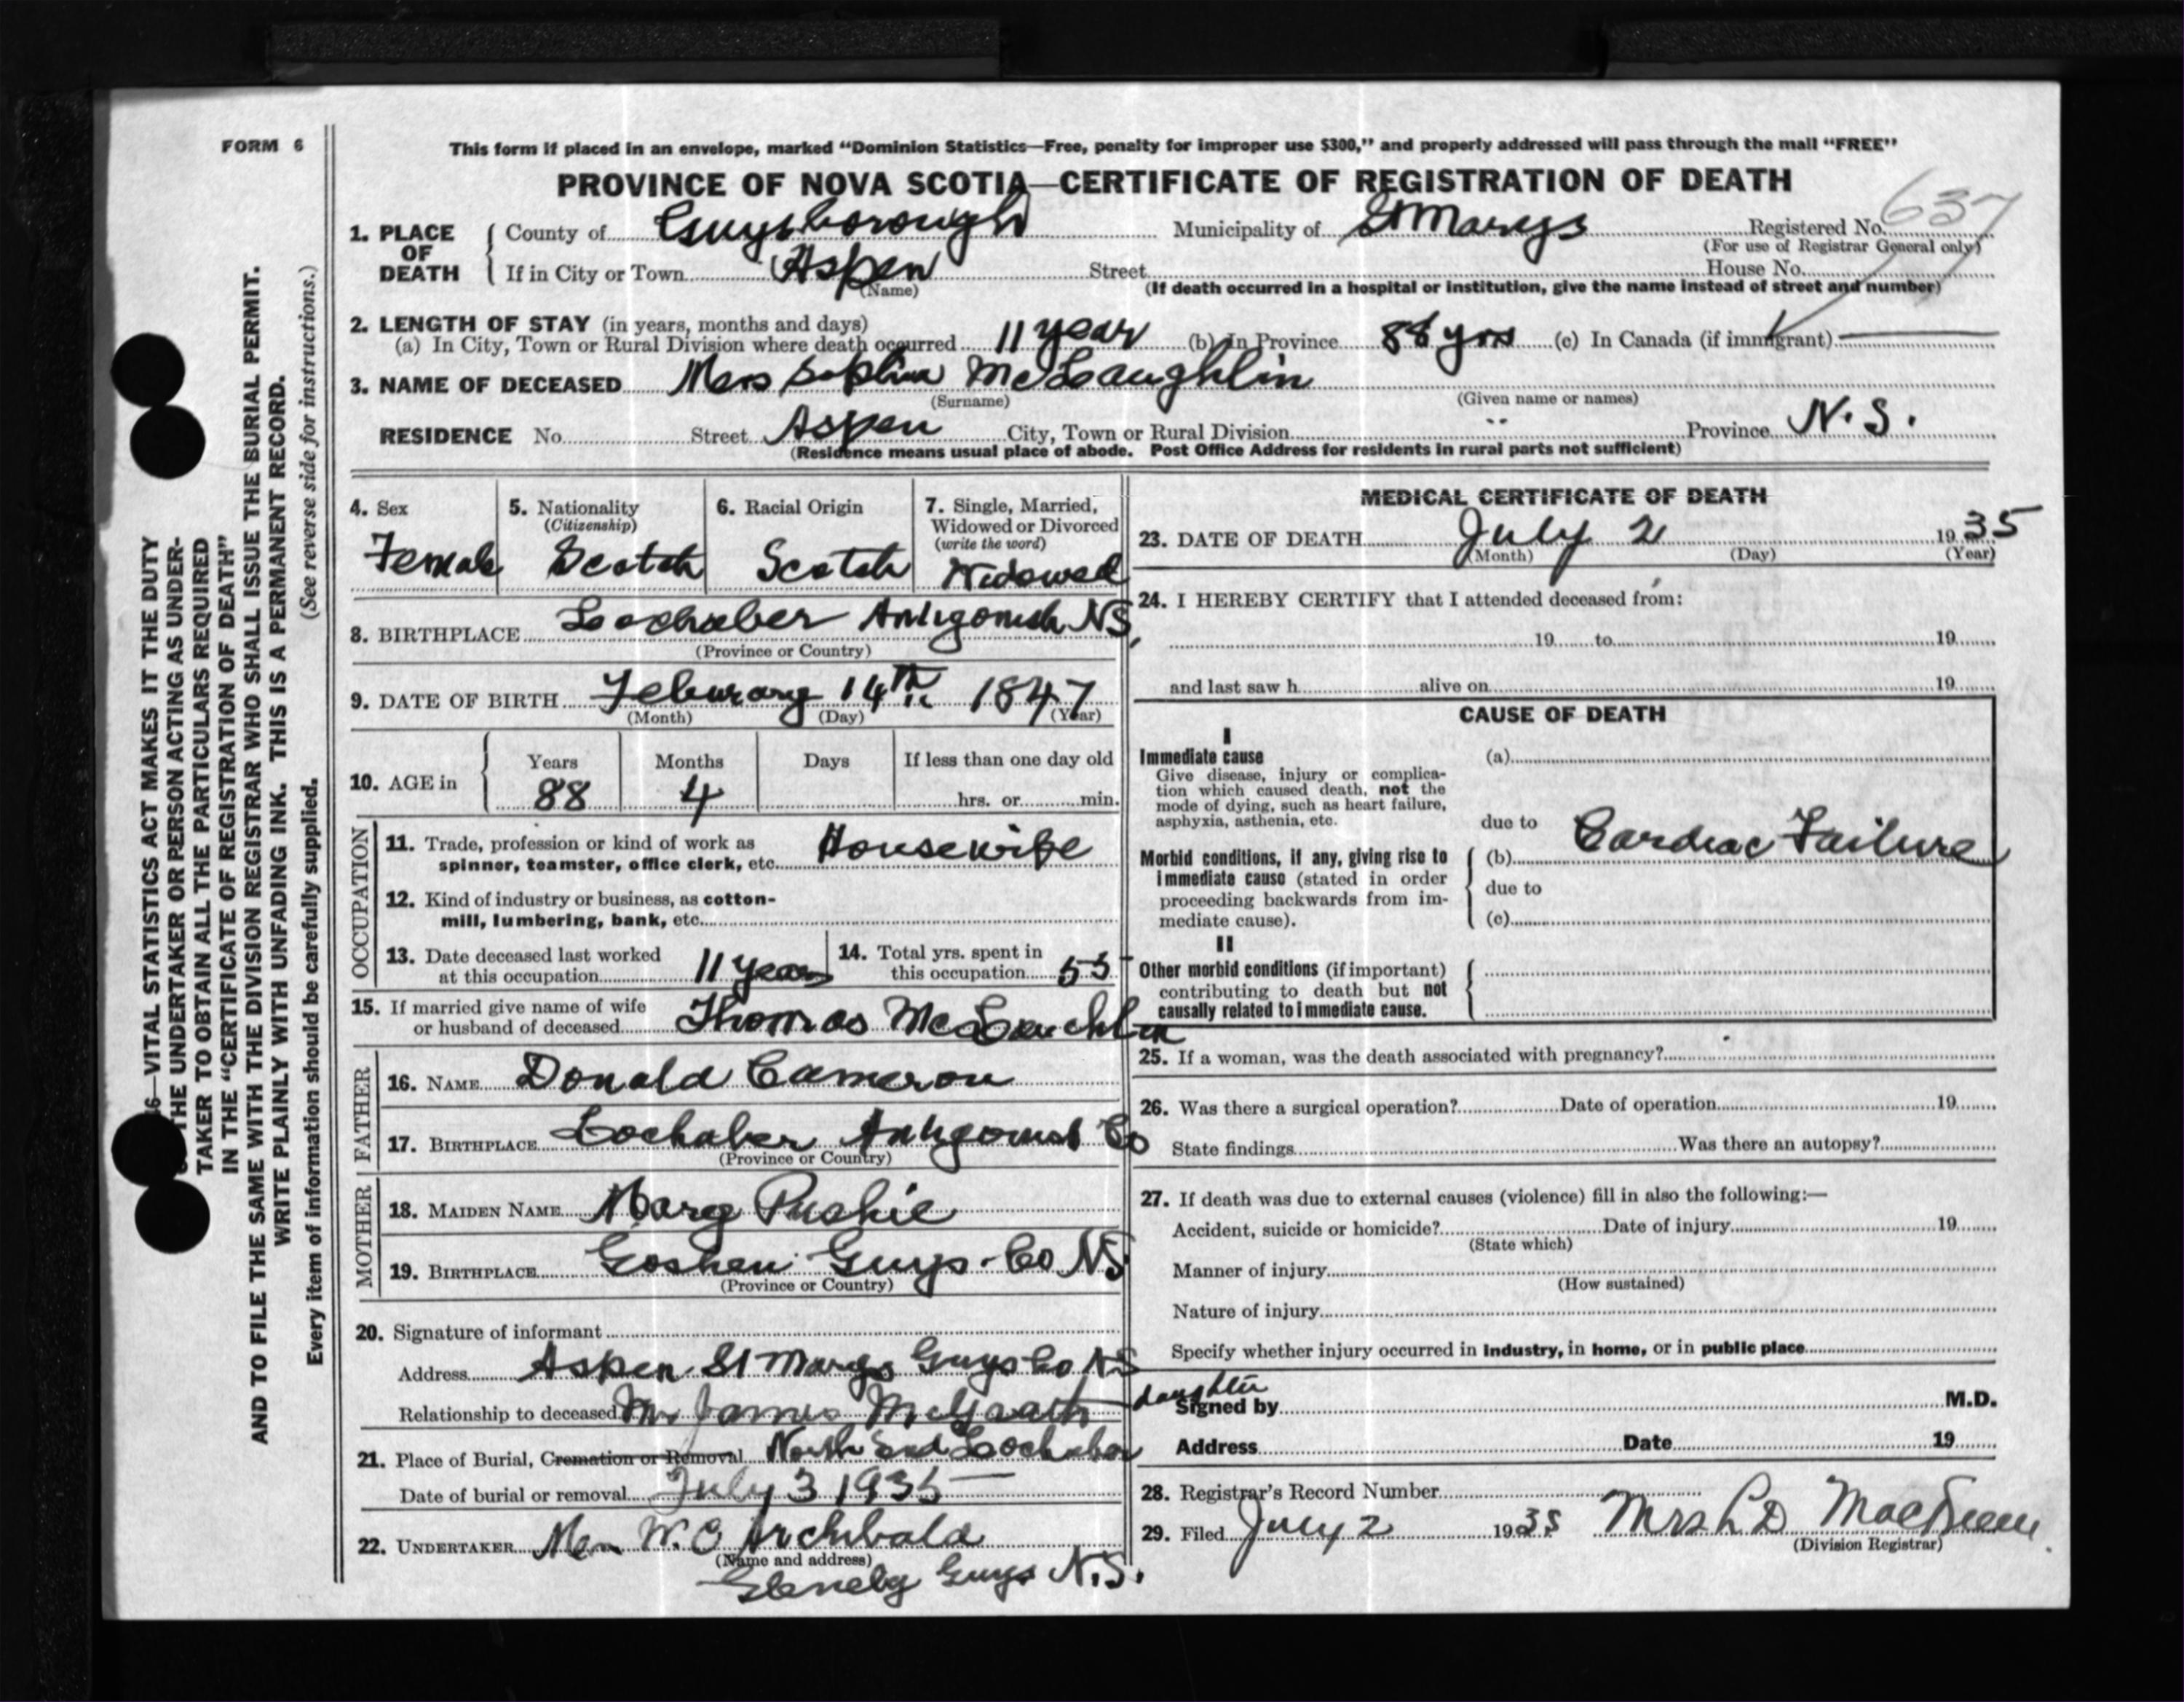 FORM 6
This form if placed in an envelope, marked “Dominion Statistics—Free, penalty for improper use $300,” and properly addressed will pass through the mail “FREE”
PROVINCE OF NOVA SCOTIA—CERTIFICATE OF REGISTRATION OF DEATH
1. PLACE OF DEATH
County of Guysborough Municipality of St Marys Registered No. 637
(For use of Registrar General only)
If in City or Town Aspen Street House No.
(Name) (If death occurred in a hospital or institution, give the name instead of street and number)
2. LENGTH OF STAY (in years, months and days)
(a) In City, Town or Rural Division where death occurred 11 year (b) In Province 88 yrs (c) In Canada (if immigrant) —
3. NAME OF DECEASED Mrs Sophia McLaughlin
(Surname) (Given name or names)
RESIDENCE No. Street Aspen City, Town or Rural Division " Province N.S.
(Residence means usual place of abode. Post Office Address for residents in rural parts not sufficient)
4. Sex
Female
5. Nationality
(Citizenship)
Scotch
6. Racial Origin
Scotch
7. Single, Married,
Widowed or Divorced
(write the word)
Widowed
8. BIRTHPLACE Lochaber Antigonish NS,
(Province or Country)
9. DATE OF BIRTH Feburary 14th 1847
(Month) (Day) (Year)
10. AGE in
Years Months Days If less than one day old
88 4 hrs. or min.
OCCUPATION
11. Trade, profession or kind of work as
spinner, teamster, office clerk, etc. Housewife
12. Kind of industry or business, as cotton-
mill, lumbering, bank, etc.
13. Date deceased last worked
at this occupation 11 years
14. Total yrs. spent in
this occupation 55
15. If married give name of wife
or husband of deceased Thomas McLauchlin
FATHER
16. NAME Donald Cameron
17. BIRTHPLACE Lochaber Antigonish Co
(Province or Country)
MOTHER
18. MAIDEN NAME Mary Pushie
19. BIRTHPLACE Goshen Guys. Co NS.
(Province or Country)
20. Signature of informant
Address Aspen St Marys Guys Co NS
Relationship to deceased James McGrath daughter
21. Place of Burial, Cremation or Removal North End Lochaber
Date of burial or removal July 3 1935 —
22. UNDERTAKER W.C Archibald
(Name and address)
Glenelg Guys N.S.
MEDICAL CERTIFICATE OF DEATH
23. DATE OF DEATH July 2 1935
(Month) (Day) (Year)
24. I HEREBY CERTIFY that I attended deceased from:
19 to 19
and last saw h alive on 19
CAUSE OF DEATH
I
Immediate cause (a)
Give disease, injury or complica-
tion which caused death, not the
mode of dying, such as heart failure,
asphyxia, asthenia, etc.
due to
Morbid conditions, if any, giving rise to
immediate cause (stated in order
proceeding backwards from im-
mediate cause).
(b) Cardiac Failure
due to
(c)
II
Other morbid conditions (if important)
contributing to death but not
causally related to immediate cause.
25. If a woman, was the death associated with pregnancy?
26. Was there a surgical operation? Date of operation 19
State findings Was there an autopsy?
27. If death was due to external causes (violence) fill in also the following:—
Accident, suicide or homicide? Date of injury 19
(State which)
Manner of injury
(How sustained)
Nature of injury
Specify whether injury occurred in industry, in home, or in public place
Signed by M.D.
Address Date 19
28. Registrar's Record Number
29. Filed July 2 1935 Mrs L D
(Division Registrar)
—VITAL STATISTICS ACT MAKES IT THE DUTY
THE UNDERTAKER OR PERSON ACTING AS UNDER-
TAKER TO OBTAIN ALL THE PARTICULARS REQUIRED
IN THE “CERTIFICATE OF REGISTRATION OF DEATH”
AND TO FILE THE SAME WITH THE DIVISION REGISTRAR WHO SHALL ISSUE THE BURIAL PERMIT.
WRITE PLAINLY WITH UNFADING INK. THIS IS A PERMANENT RECORD.
Every item of information should be carefully supplied. (See reverse side for instructions.)